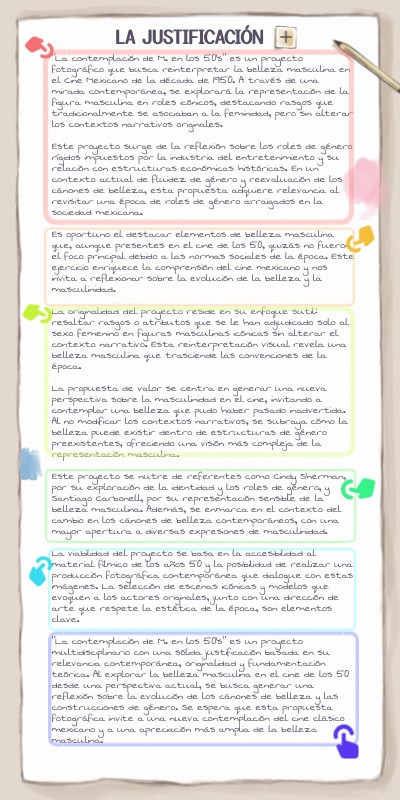 LA JUSTIFICACIÓN
"La contemplación de M. en los 50's" es un proyecto
fotográfico que busca reinterpretar la belleza masculina en
el Cine Mexicano de la década de 1950. A través de una
mirada contemporánea, se explorará la representación de la
figura masculina en roles icónicos, destacando rasgos que
tradicionalmente se asociaban a la feminidad, pero sin alterar
los contextos narrativos originales.
Este proyecto surge de la reflexión sobre los roles de género
rígidos impuestos por la industria del entretenimiento y su
relación con estructuras económicas históricas. En un
contexto actual de fluidez de género y reevaluación de los
cánones de belleza, esta propuesta adquiere relevancia al
revisitar una época de roles de género arraigados en la
sociedad mexicana.
Es oportuno el destacar elementos de belleza masculina
que, aunque presentes en el cine de los 50, quizás no fueron
el foco principal debido a las normas sociales de la época. Este
ejercicio enriquece la comprensión del cine mexicano y nos
invita a reflexionar sobre la evolución de la belleza y la
masculinidad.
La originalidad del proyecto reside en su enfoque sutil:
resaltar rasgos o atributos que se le han adjudicado solo al
sexo femenino en figuras masculinas icónicas sin alterar el
contexto narrativo. Esta reinterpretación visual revela una
belleza masculina que trasciende las convenciones de la
época.
La propuesta de valor se centra en generar una nueva
perspectiva sobre la masculinidad en el cine, invitando a
contemplar una belleza que pudo haber pasado inadvertida.
Al no modificar los contextos narrativos, se subraya cómo la
belleza puede existir dentro de estructuras de género
preexistentes, ofreciendo una visión más compleja de la
representación masculina.
Este proyecto se nutre de referentes como Cindy Sherman,
por su exploración de la identidad y los roles de género, y
Santiago Carbonell, por su representación sensible de la
belleza masculina. Además, se enmarca en el contexto del
cambio en los cánones de belleza contemporáneos, con una
mayor apertura a diversas expresiones de masculinidad.
La viabilidad del proyecto se basa en la accesibilidad al
material fílmico de los años 50 y la posibilidad de realizar una
producción fotográfica contemporánea que dialogue con estas
imágenes. La selección de escenas icónicas y modelos que
evoquen a los actores originales, junto con una dirección de
arte que respete la estética de la época, son elementos
clave.
"La contemplación de M. en los 50's" es un proyecto
multidisciplinario con una sólida justificación basada en su
relevancia contemporánea, originalidad y fundamentación
teórica. Al explorar la belleza masculina en el cine de los 50
desde una perspectiva actual, se busca generar una
reflexión sobre la evolución de los cánones de belleza y las
construcciones de género. Se espera que esta propuesta
fotográfica invite a una nueva contemplación del cine clásico
mexicano y a una apreciación más amplia de la belleza
masculina.